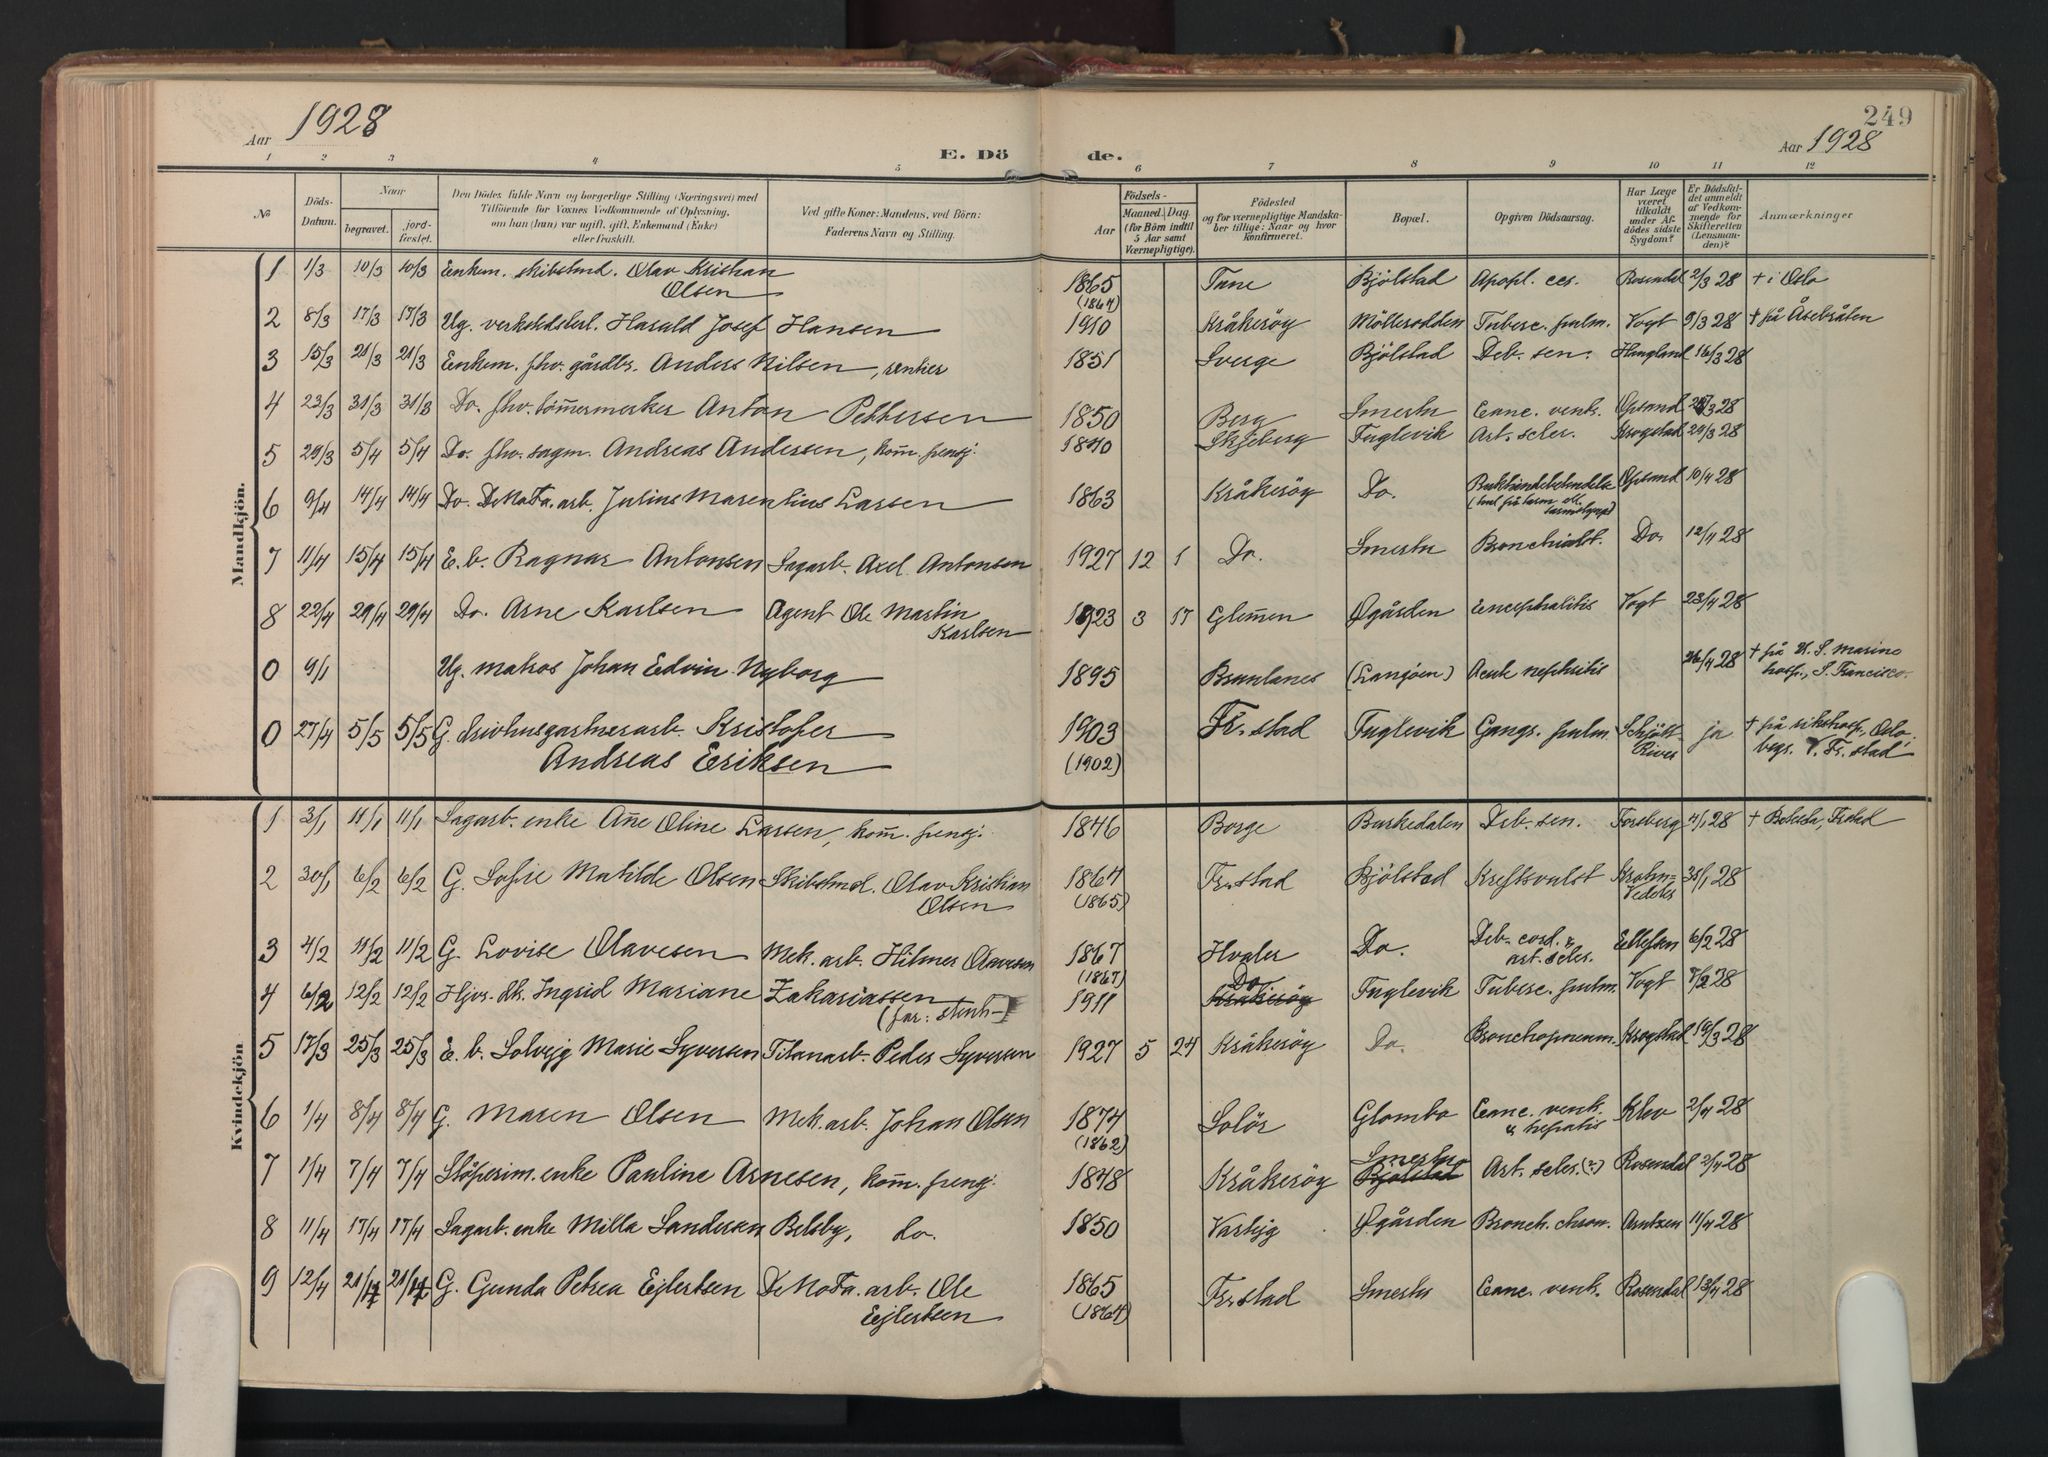 249
Aar 1928
Aar 1928
E. Dö de.
1 2 3 4 5 6 7 8 9 10 11 12
No
Döds-Datum.
Naar begravet. jord-fæstet.
Den Dödes fulde Navn og borgerlige Stilling (Næringsvei) med Tilföiende for Voxnes Vedkommende af Oplysning, om han (hun) var ugift, gift, Enkemand (Enke) eller fraskilt.
Ved gifte Koner: Mandens, ved Börn: Faderens Navn og Stilling.
Födsels- Aar Maaned. Dag. (for Börn indtil 5 Aar samt Værnepligtige).
Födested og for værnepligtige Mandska-ber tillige: Naar og hvor Konfirmeret.
Bopæl.
Opgiven Dödsaarsag.
Har Læge været tilkaldt under Af-dödes sidste Sygdom?
Er Dödsfal-det anmeldt af Vedkom-mende for Skifteretten (Lensman-den)?
Anmærkninger
Mandkjön.
1 1/3 10/3 10/3 Enkem. skibstmd. Olav Kristian Olsen 1865 (1864) Tune Bjölstad Apopl. ces. Rosendal 2/3 28 + i Oslo
2 8/3 17/3 17/3 Ug. verkstedsterl. Harald Josef Hansen 1910 Kråkeröy Mölleroddén Tuberc. pulm. Vogt 9/3 28 + på Åsebråten
3 15/3 21/3 21/3 Enkem. fhv. gårdbr. Anders Nilsen, rentier 1851 Sverge Bjölstad Deb. sen. Haugland 16/3 28
4 23/3 31/3 31/3 Do. fhv. tömmermerker Anton Pettersen 1850 Berg Smertu Canc. ventr. Opsand 3 28
5 29/3 5/4 5/4 Do. fhv. sagm. Andreas Andersen, kom̄. pensj. 1840 Skjeberg Fuglevik Art. scler. Krogstad 29/3 28
6 9/4 14/4 14/4 Do. DeNoFa. arb. Julius Marentius Larsen 1863 Kråkeröy Do. Bukhindebetendelse (hul på tarm ell. Opsand 10/4 28
7 11/4 15/4 15/4 E. b. Ragnar Antonsen Sagarb. Axel Antonsen 1927 12 1 Do. Smertu Bronchialt. Do. 12/4 28
8 22/4 29/4 29/4 Do. Arne Karlsen Agent Ole Martin Karlsen 1923 3 17 Glem̄en Øgården Encephalitis Vogt 23/4 28
0 9/1 Ug. matros Johan Edvin Nyborg 1895 Brunlanes (Langöen) Acut nephritis 26/4 28 + på U. S. Marine hosp., S. Francisco.
0 27/4 5/5 5/5 G. drivhusgartnerarb. Kristofer Andreas Eriksen 1903 (1902) Fr.stad Fuglevik Gangr. pulm. Schjött-River ja + på rikshosp., Oslo. begr. V. Fr.stad
Kvindekjön
1 3/1 11/1 11/1 Sagarb. enke An̄e Oline Larsen, kom̄. pensj. 1846 Borge Buskedalen Deb. sen. Forsberg 4/1 28 + Betesda, Frstad
2 30/1 6/2 6/2 G. Sofie Matilde Olsen Skibstmd. Olav Kristian Olsen 1864 (1865) Fr.stad Bjölstad Kreftsvulst Krohn= 31/1 28
3 4/2 11/2 11/2 G. Lovise Olavesen Mek. arb. Hilmer Olavesen 1867 (1867) Hvaler Do. Deb. cord. & art. scler. Ellefsen 6/2 28
4 6/2 12/2 12/2 Hjvr. dt. Ingrid Mariane Zakariassen 1911 Do Kråkeröy Fuglevik Tuberc. pulm. Vogt 7/2 28
5 17/3 25/3 25/3 E. b. Solvejg Marie Syversen Titanarb. Peder Syversen 1927 5 24 Kråkeröy Do. Bronchopneum. Krogstad 19/3 28
6 1/4 8/4 8/4 G. Maren Olsen Mek. arb. Johan Olsen 1874 (1862) Solör Glombo Canc. ventr. & hepatis Klev 2/4 28
7 1/4 7/4 7/4 Stöperim. enke Pauline Arnesen, kom̄. pensj. 1848 Kråkeröy Smertu Bjölstad Art. scler. (?) Rosendal 2/4 28
8 11/4 17/4 17/4 Sagarb. enke Milla Sandersen Belsby, do. 1850 Varteig Øgården Bronch. chron. Arntzen 11/4 28
9 12/4 21/4 21/4 G. Gunda Petrea Ejlertsen DeNoFa. arb. Ole Ejlertsen 1865 (1864) Fr.stad Smertu Canc. ventr. Rosendal 13/4 28